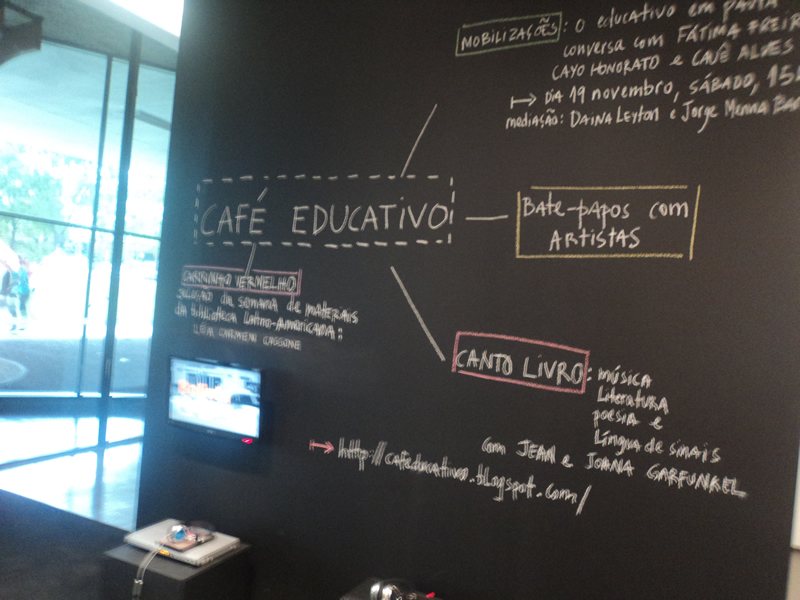 MOBILIZAÇÕES: o educativo em pauta
conversa com FÁTIMA FREIR
CAYO HONORATO e CAUÊ ALVES
DIA 19 novembro, SÁBADO, 15
mediação: DAINA LEYTON e Jorge Menna Bar
CAFÉ EDUCATIVO
BATE-PAPOS com
ARTISTAS
CARRINHO VERMELHO
seleção da semana de materiais
da biblioteca Latino-Americana:
CANTO LIVRO: música
Literatura
poesia e
Língua de sinais
com JEAN e JOANA GARFUNKEL
http://cafeducativo.blogspot.com/